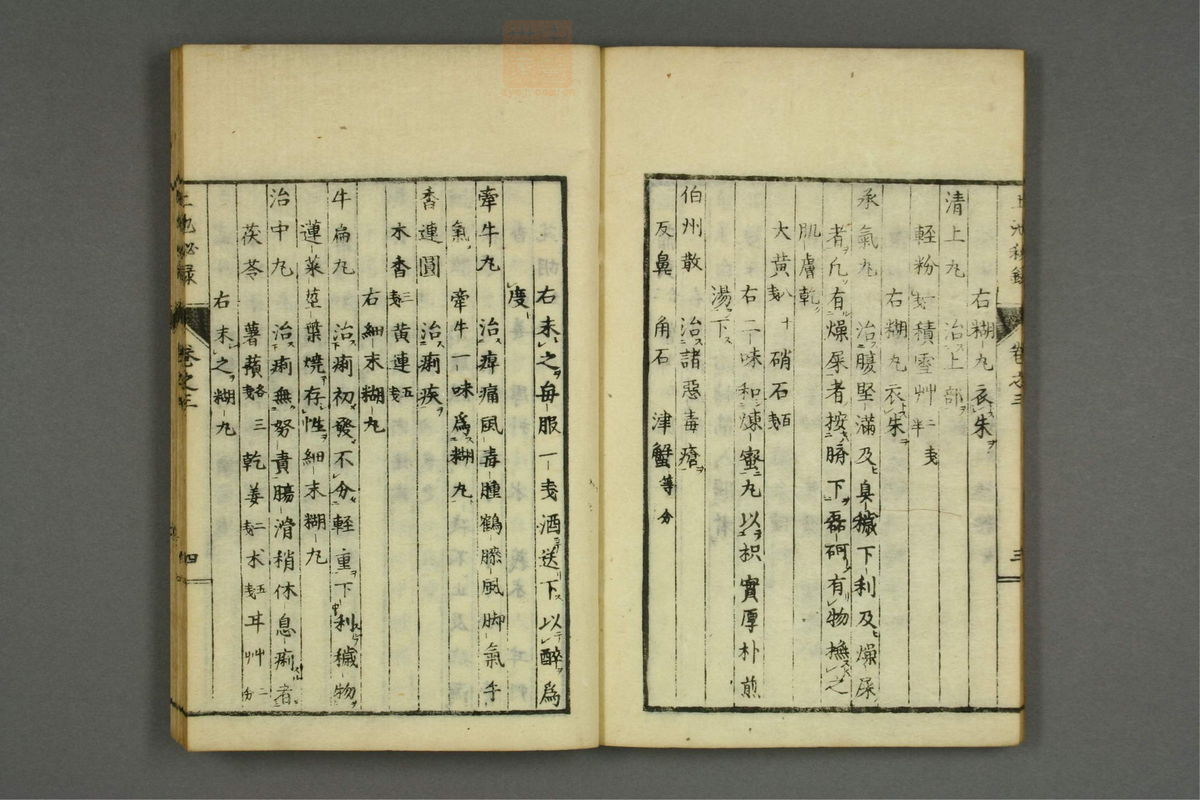 右糊丸衣朱
清上丸 治上部
軽粉 積雪艸
右糊丸衣朱
承氣丸 治腹堅満及臭穢下利及燥屎
者凡有燥屎者按臍下磊砢有物撫之
肌膚乾
大黄 八十 硝石
右二味和煉蜜丸以枳實厚朴煎
湯下
伯州散 治諸惡毒瘡
反鼻 角石 津蟹 等分
卷之三
三
右末之毎服一戔酒送下以醉爲
度
牽牛丸 治痺痛風毒腫鶴膝風脚氣手
氣 牽牛一味爲糊丸
香連圓 治痢疾
木香 三戔 黄連 五戔
右細末糊丸
牛扁丸 治痢初發不分軽重下利穢物
蓮葉莖葉燒存性細末糊丸
治中丸 治痢無努責腸滑稍休息痢者
茯苓 薯蕷 各三戔 乾姜 二戔 朮 五戔 耳艸 二分
右末之糊丸
卷之三
四